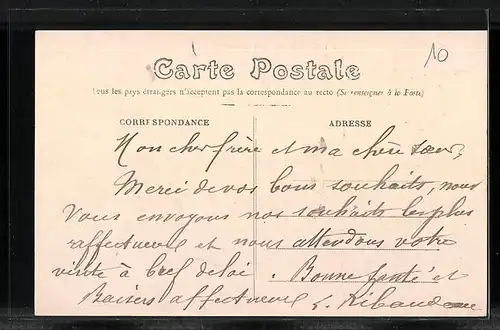 10
Carte Postale
Tous les pays étrangers n'acceptent pas la correspondance au recto (Se renseigner à la Poste)
CORRESPONDANCE ADRESSE
Mon cher frère et ma chère sœur,
Merci de vos bons souhaits, nous
Vous envoyons nos souhaits les plus
affectueux et nous attendons votre
visite à bref délai. Bonne santé et
Baisers affectueux